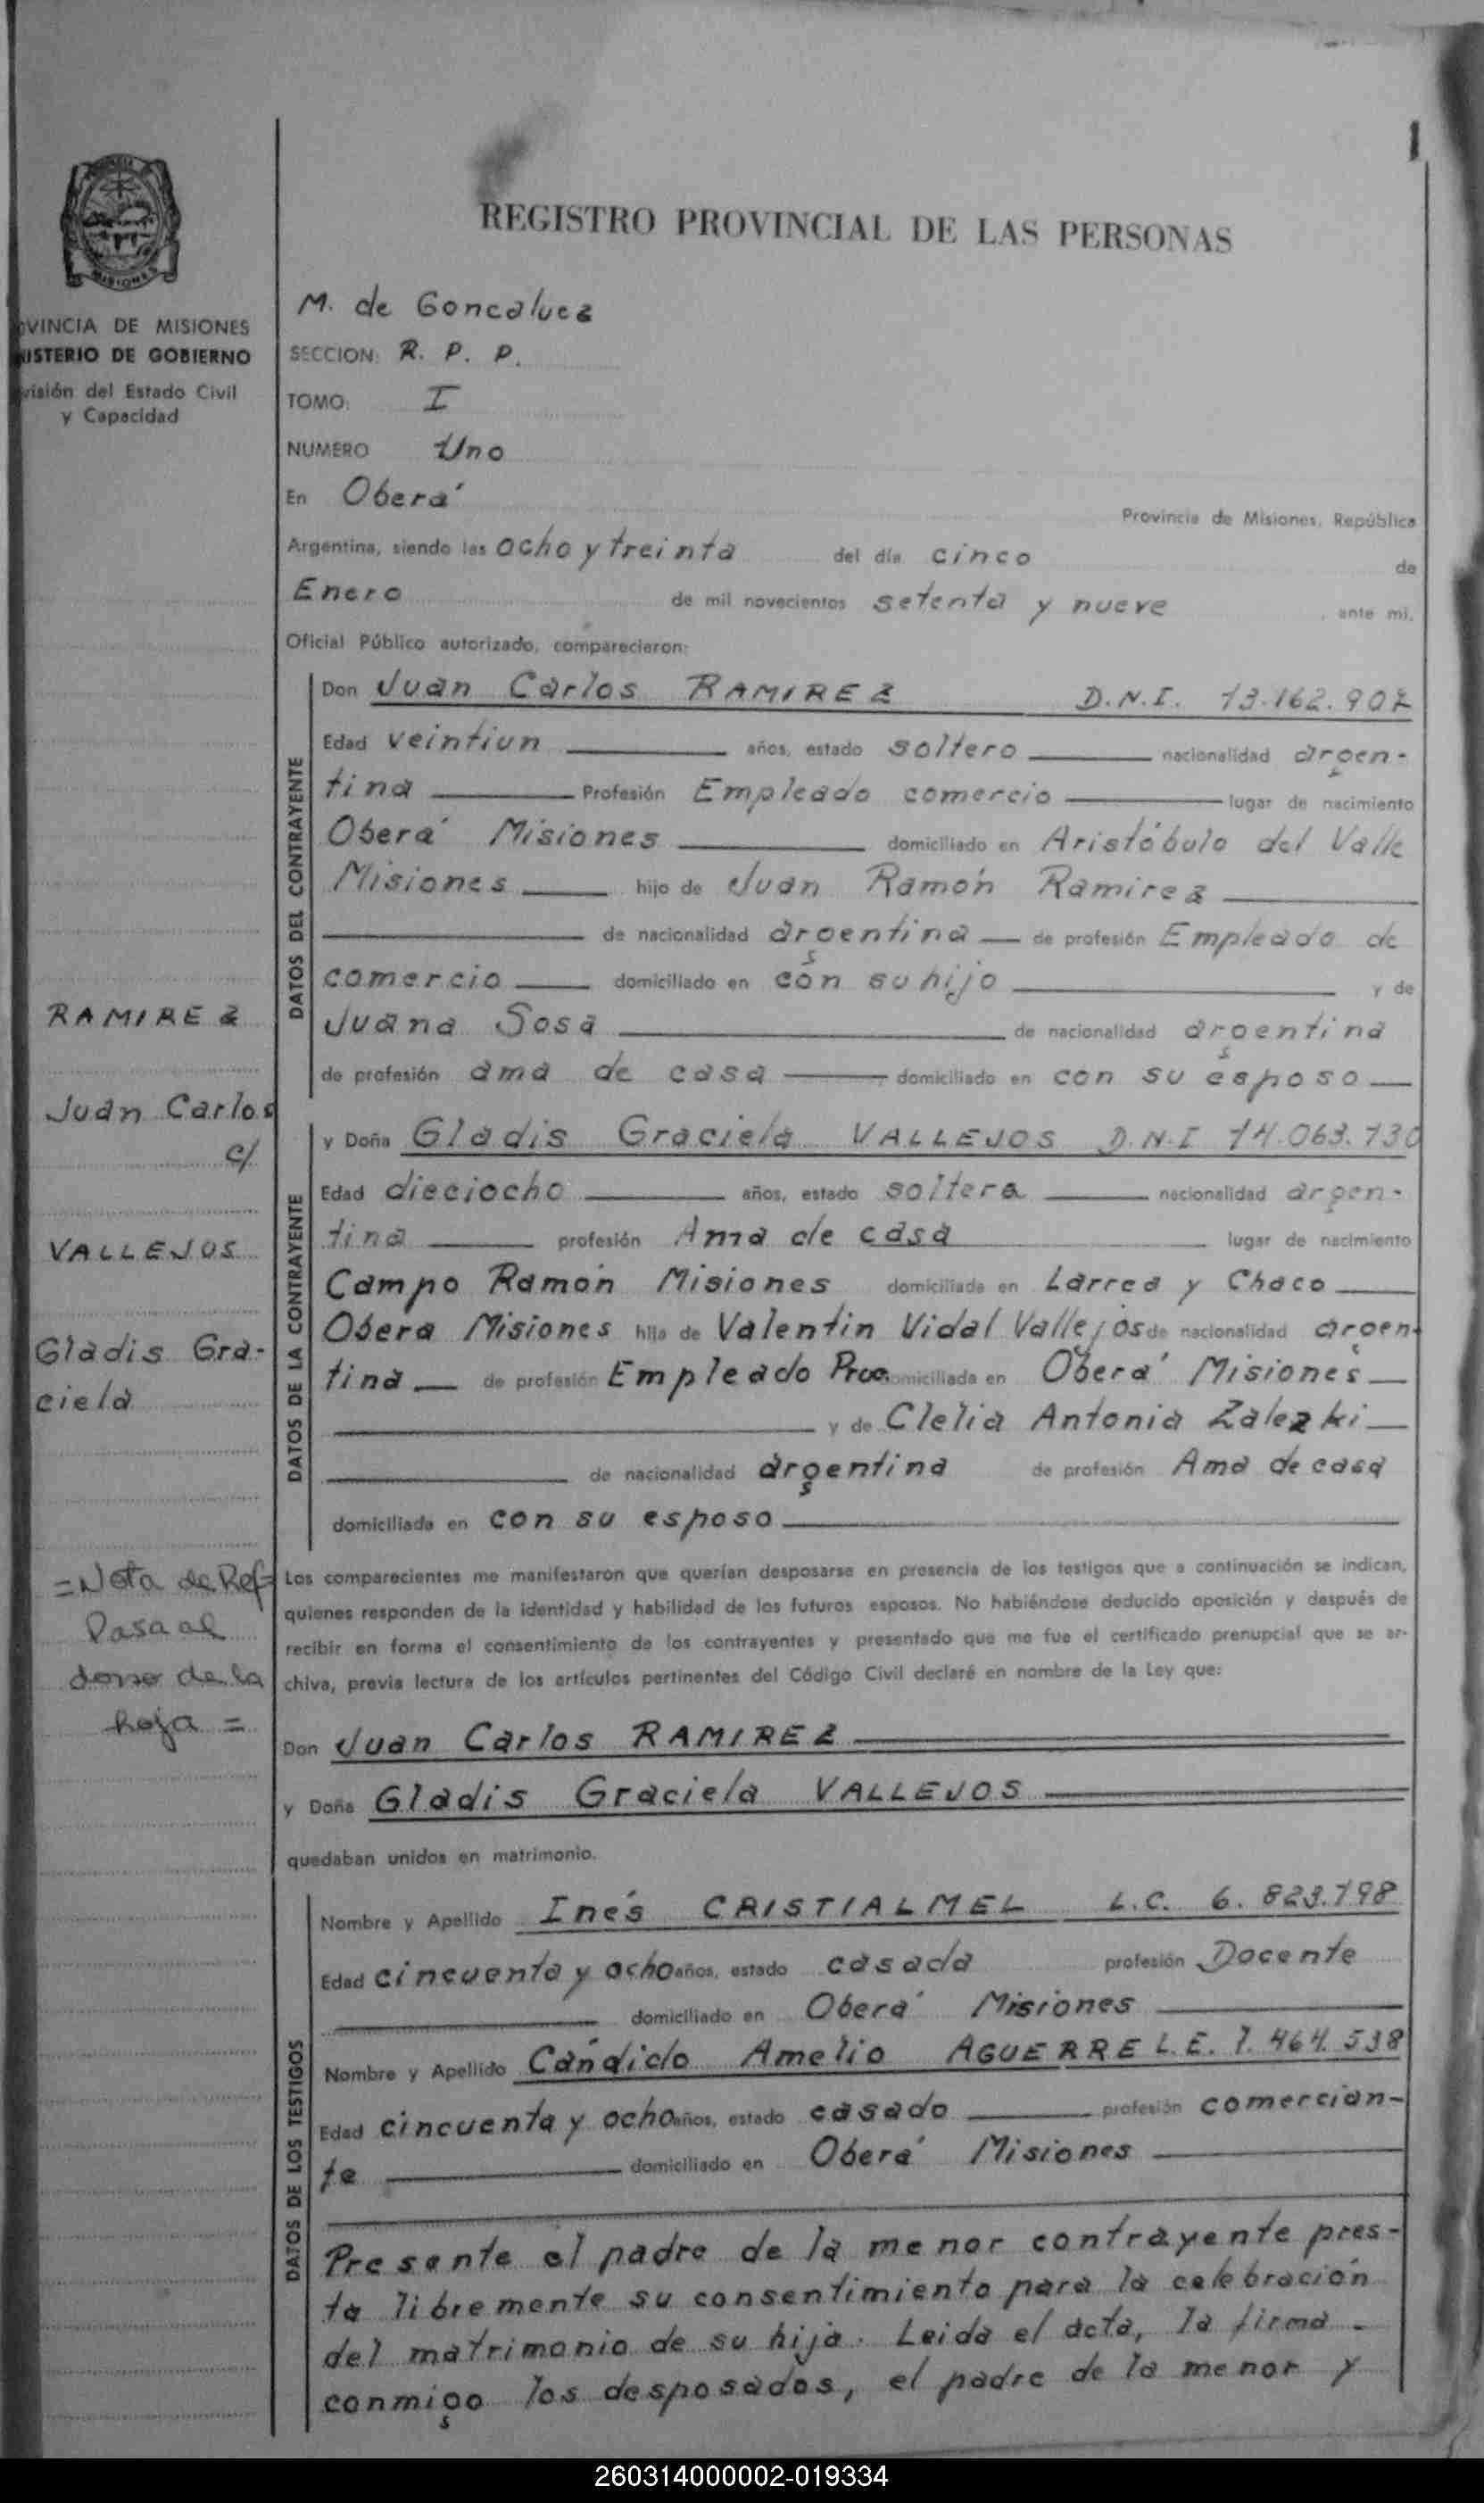 1
MISIONES
REGISTRO PROVINCIAL DE LAS PERSONAS
VINCIA DE MISIONES
ISTERIO DE GOBIERNO
visión del Estado Civil
y Capacidad
M. de Goncalvez
SECCION: R. P. P.
TOMO: I
NUMERO Uno
En Oberá Provincia de Misiones, República
Argentina, siendo las ocho y treinta del día cinco de
Enero de mil novecientos setenta y nueve, ante mi,
Oficial Público autorizado, comparecieron:
DATOS DEL CONTRAYENTE
Don Juan Carlos RAMIREZ D.N.I. 13.162.907
Edad veintiun años, estado soltero nacionalidad argen-
tina Profesión Empleado comercio lugar de nacimiento
Oberá Misiones domiciliado en Aristóbulo del Valle
Misiones hijo de Juan Ramón Ramirez
de nacionalidad argentina de profesión Empleado de
comercio domiciliado en con su hijo y de
Juana Sosa de nacionalidad argentina
de profesión ama de casa domiciliado en con su esposo
RAMIREZ
Juan Carlos
c/
VALLEJOS
Gladis Gra-
ciela
DATOS DE LA CONTRAYENTE
y Doña Gladis Graciela VALLEJOS D.N.I 14.063.730
Edad dieciocho años, estado soltera nacionalidad argen-
tina profesión Ama de casa lugar de nacimiento
Campo Ramón Misiones domiciliada en Larrea y Chaco
Obera Misiones hija de Valentin Vidal Vallejos de nacionalidad argen-
tina de profesión Empleado Prov. domiciliada en Oberá Misiones
y de Clelia Antonia Zalezki
de nacionalidad argentina de profesión Ama de casa
domiciliada en con su esposo
=Nota de Ref=
Pasa al
dorso de la
hoja =
Los comparecientes me manifestaron que querían desposarse en presencia de los testigos que a continuación se indican,
quienes responden de la identidad y habilidad de los futuros esposos. No habiéndose deducido oposición y después de
recibir en forma el consentimiento de los contrayentes y presentado que me fue el certificado prenupcial que se ar-
chiva, previa lectura de los artículos pertinentes del Código Civil declaré en nombre de la Ley que:
Don Juan Carlos RAMIREZ
y Doña Gladis Graciela VALLEJOS
quedaban unidos en matrimonio.
DATOS DE LOS TESTIGOS
Nombre y Apellido Inés CRISTIALMEL L.C. 6.823.798
Edad cincuenta y ocho años, estado casada profesión Docente
domiciliado en Oberá Misiones
Nombre y Apellido Cándido Amelio AGUERRE L.E. 7.464.538
Edad cincuenta y ocho años, estado casado profesión comercian-
te domiciliado en Oberá Misiones
Presente el padre de la menor contrayente pres-
ta libremente su consentimiento para la celebración
del matrimonio de su hija. Leida el acta, la firma
conmigo los desposados, el padre de la menor y
260314000002-019334